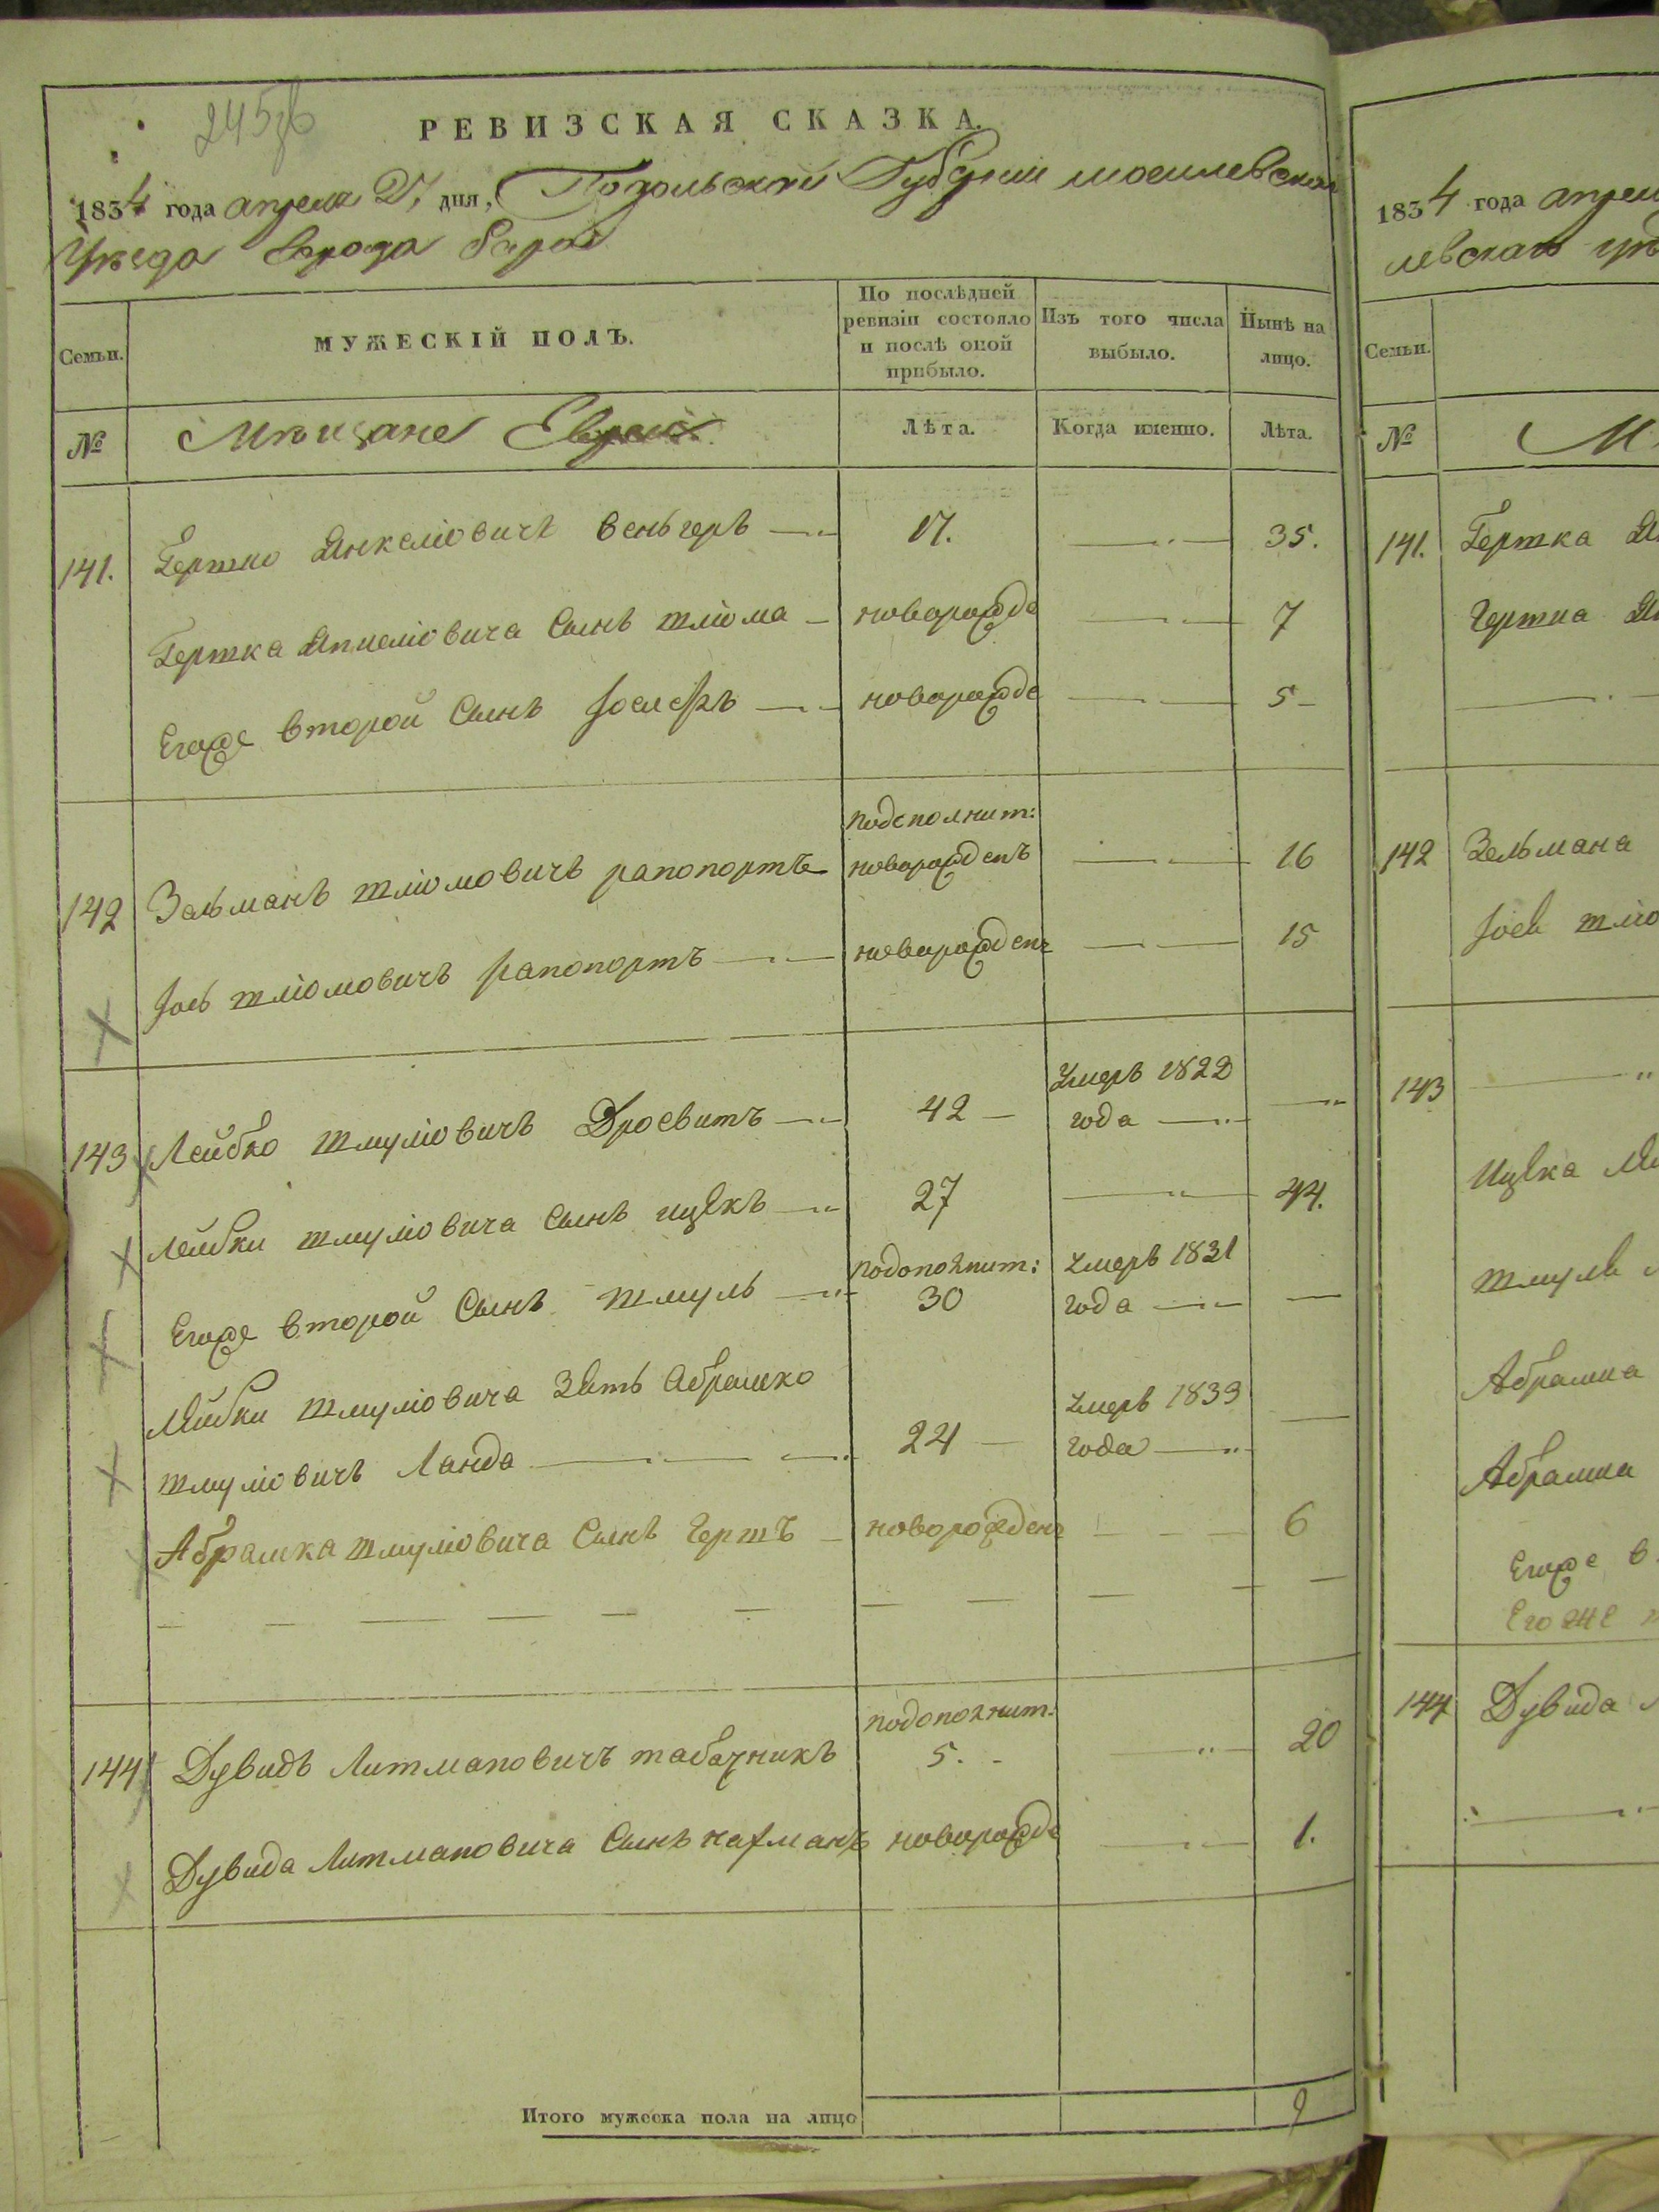 245об
РЕВИЗСКАЯ СКАЗКА.
1834 года апреля 27 дня, Подольской Губернии могилевскаго
Уѣзда города Бара
Семьи. МУЖЕСКІЙ ПОЛЪ. По послѣдней ревизіи состояло и послѣ оной прибыло. Изъ того числа выбыло. Нынѣ на лицо.
№ Мѣщане Евреи Лѣта. Когда именно. Лѣта.
141. Гершко Янкеліовичъ венгеръ 17. 35.
Гершка Янкеліовича Сынъ шліома новорожде 7
Егоже второй Сынъ Іосефъ новорожде 5
142 Зельманъ шліомовичъ рапопортъ подополнит: новорожденъ 16
Іось шліомовичъ рапопортъ новорожденъ 15
143 Лейбко шмуліовичъ 42 Умеръ 1822 года
Лейбки шмуліовича Сынъ ицѣкъ 27 44.
Егоже второй Сынъ шмуль подополнит: 30 Умеръ 1831 года
Лейбки шмуліовича Зять Абрамко
шмуліовичъ Ланда 24 Умеръ 1833 года
Абрамка шмуліовича Сынъ Гершъ новорожденъ 6
144 Дувидъ Литмановичъ табачникъ подополнит: 5. 20
Дувида Литмановича Сынъ нахманъ новорожде 1.
Итого мужеска пола на лицо 9
1834 года апреля
левскаго уѣ
Семьи.
№ М
141. Гершка Ян
Гершка Ян
142 Зельмана
Іося шліо
143
Ицѣка Ле
шмуля
Абрамка
Абрамка
Егоже в
Егоже
144 Дувида